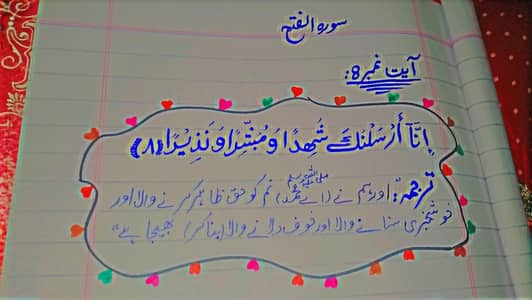 سورہ الفتح
آیت نمبر 8:
اِنَّآ أَرْسَلْنٰكَ شٰهِدًا وَمُبَشِّرًا وَنَذِيْرًا ﴿٨﴾
ترجمہ: اور ہم نے (اے محمد ﷺ) تم کو حق ظاہر کرنے والا اور
خوشخبری سنانے والا اور خوف دلانے والا (بنا کر) بھیجا ہے"